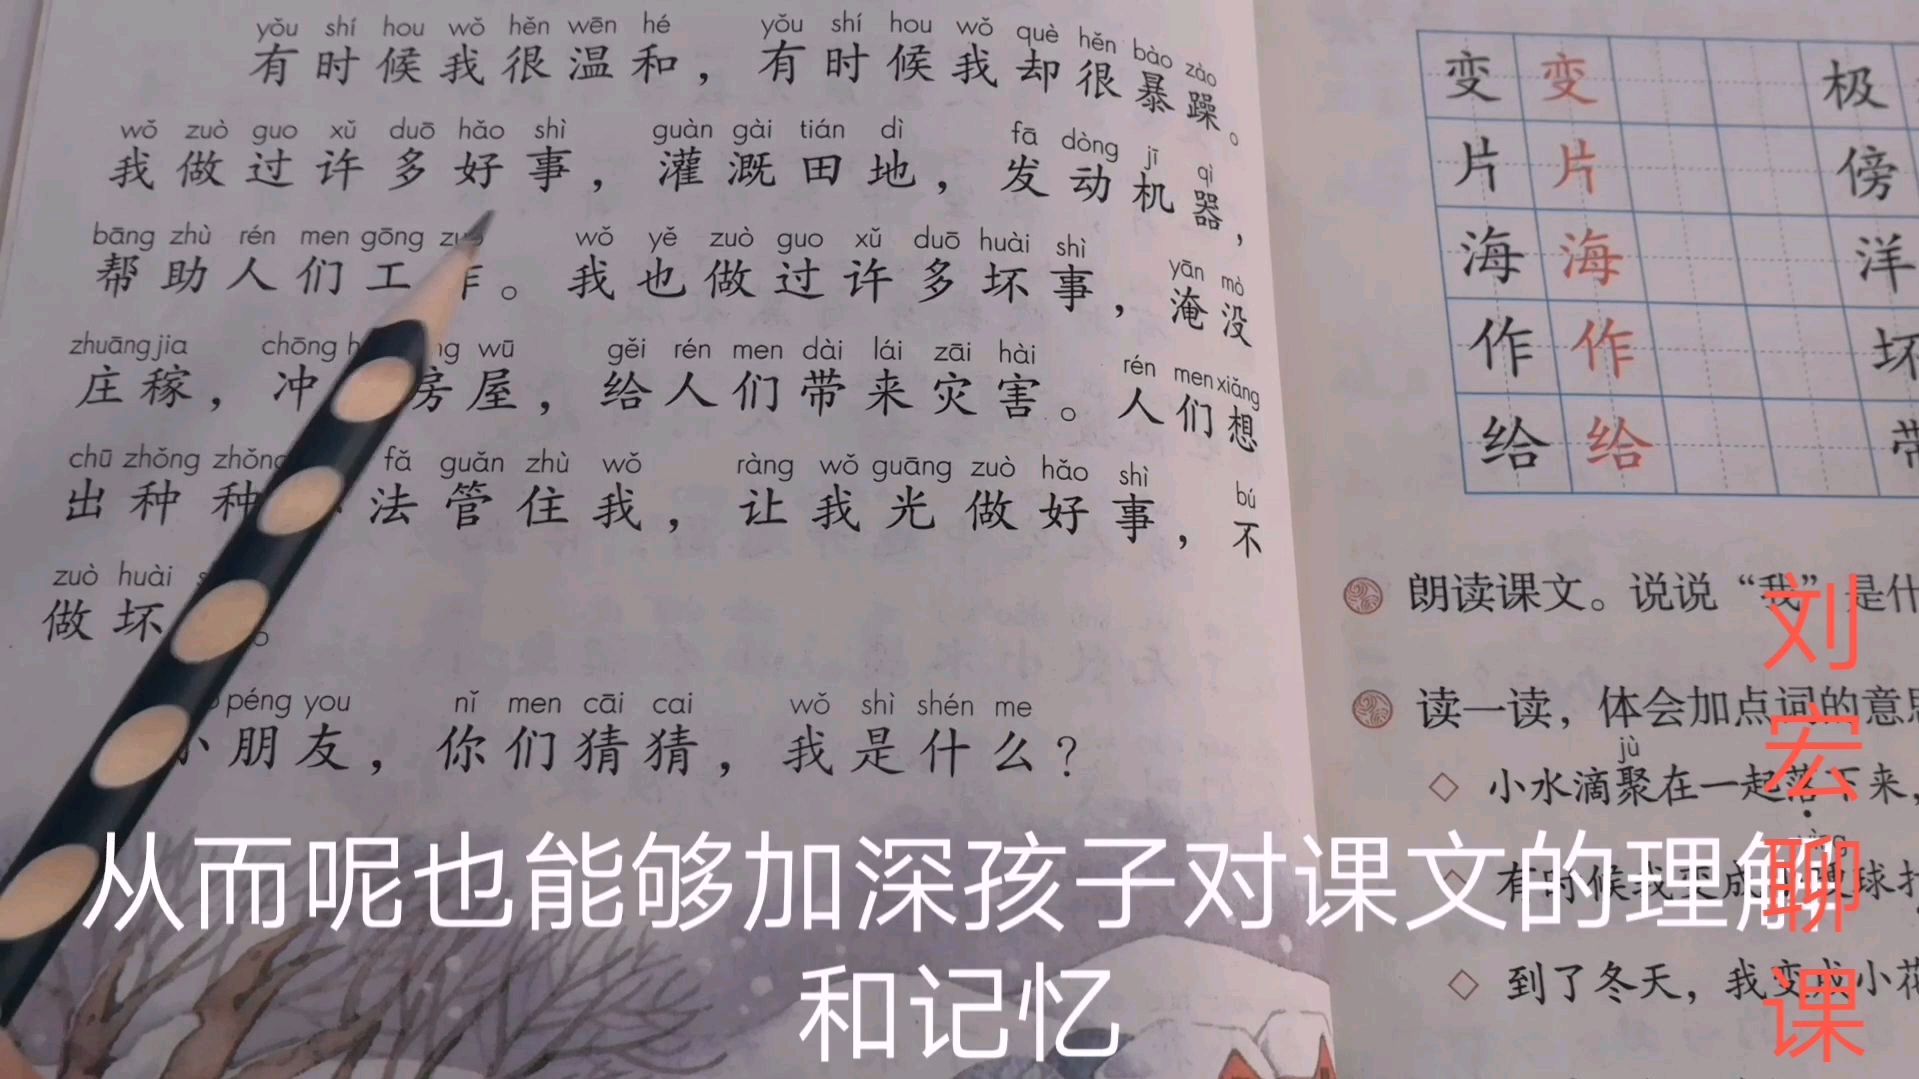 yǒu shí hou wǒ hěn wēn hé yǒu shí hou wǒ què hěn bào zào
有时候我很温和，有时候我却很暴躁。
wǒ zuò guo xǔ duō hǎo shì guàn gài tián dì fā dòng jī qì
我做过许多好事，灌溉田地，发动机器，
bāng zhù rén men gōng wǒ yě zuò guo xǔ duō huài shì yān mò
帮助人们工作。我也做过许多坏事，淹没
zhuāng jia chōng wū gěi rén men dài lái zāi hài rén men xiǎng
庄稼，冲 房屋，给人们带来灾害。人们想
chū zhǒng zhǒng fǎ guǎn zhù wǒ ràng wǒ guāng zuò hǎo shì bú
出种种 法管住我，让我光做好事，不
zuò huài
做坏 。
péng you nǐ men cāi cai wǒ shì shén me
小朋友，你们猜猜，我是什么？
变 变 极
片 片 傍
海 海 洋
作 作 坏
给 给 带
朗读课文。说说“我”是什
读一读，体会加点词的意思
jù
小水滴聚在一起落下来，
有时候我变成 球
到了冬天，我变成小花
从而呢也能够加深孩子对课文的理解
和记忆
刘宏聊课